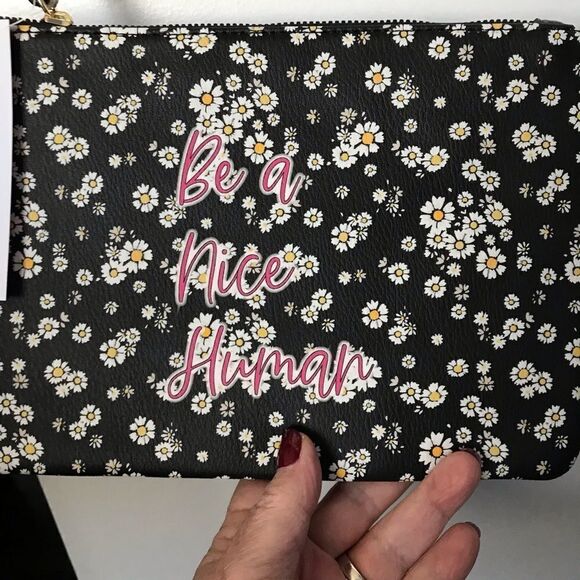 Be a
Nice
Human